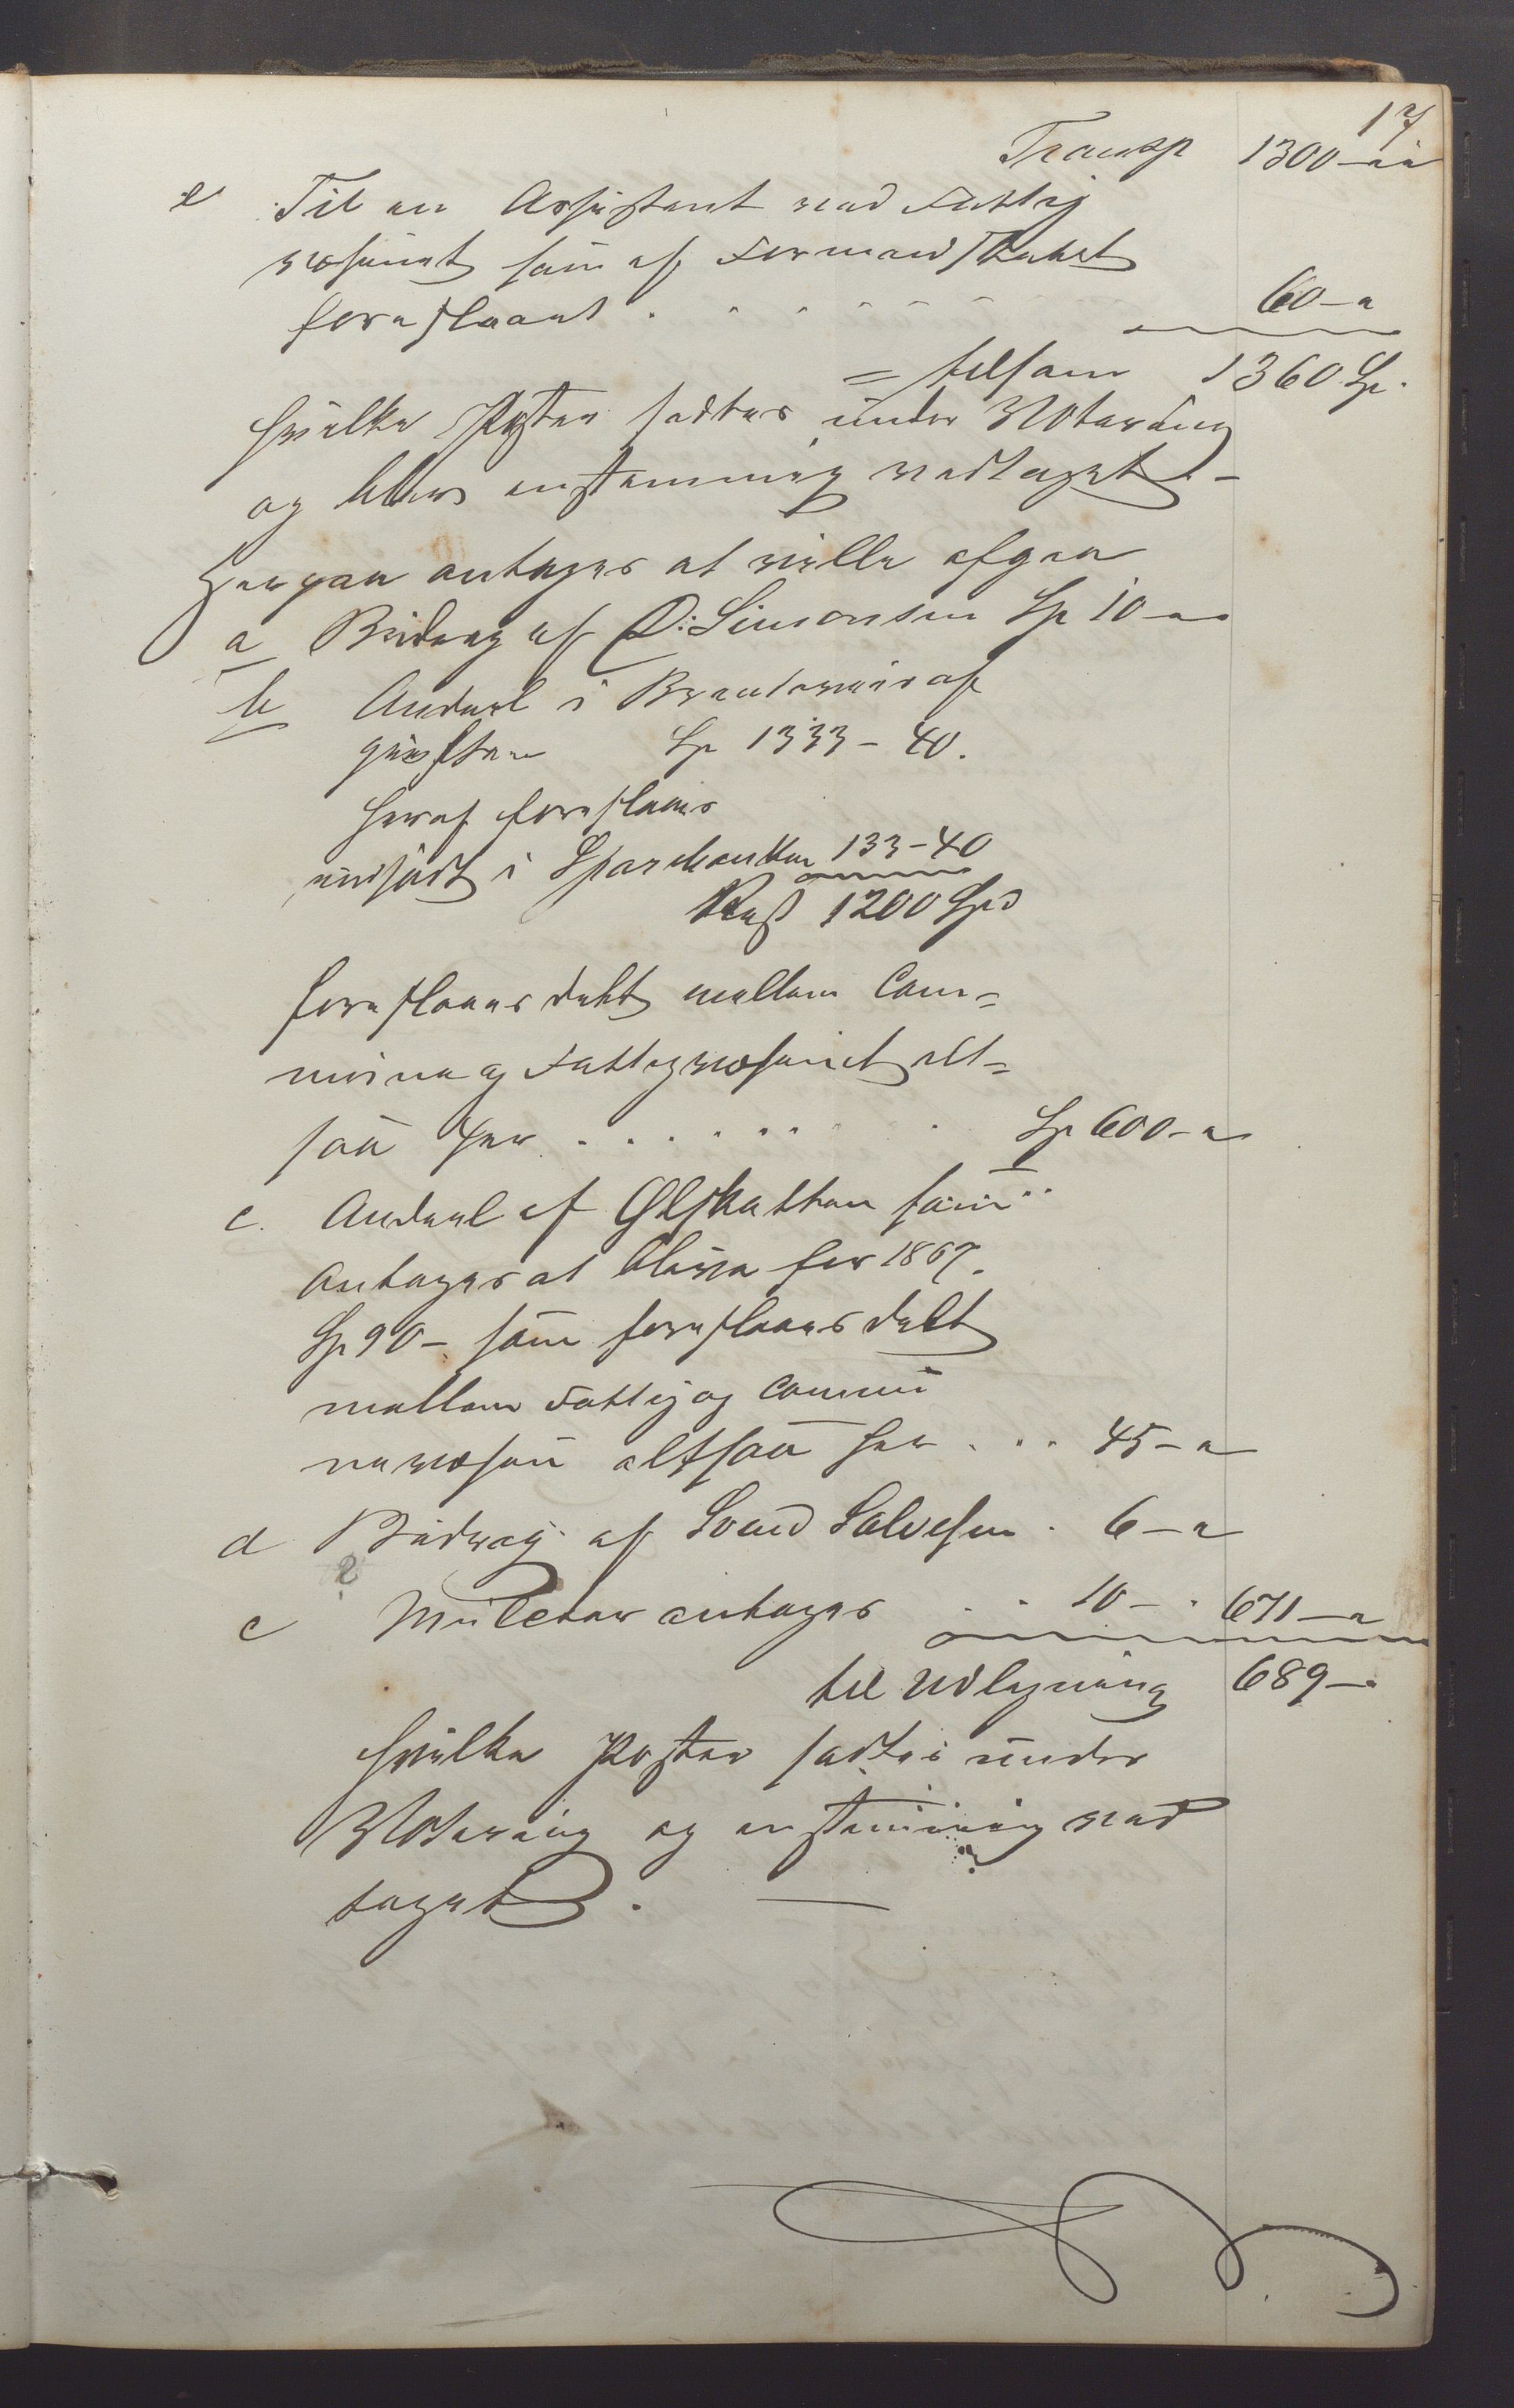 17
Transp 1300 - "
e Til en Assistent ved Fattig
væsenet som af Formandskabet
foreslaaet . . . . . . . 60 - "
= tilsam 1360 Sp.
hvilke Poster sattes under Votering
og blev enstemmig vedtaget. -
Herpaa antages at ville afgaa
a Bidrag af O: Simonsen Sp 10 - "
b Andeel i Brændeviinsaf
giften Sp 1333 - 40.
heraf foreslaaes
indsadt i Sparebanken 133 - 40
Rest 1200 Spd
foreslaaes delt mellem Com=
mune og Fattigvæsenet alt=
saa her . . . . . . . . Sp 600 - "
c. Andeel af Ølskatten som
antages at blive for 1867.
Sp 90 - som foreslaaes delt
mellem Fattig og Commu
nevæsen altsaa her . . . 45 - "
d Bidrag af Svend Salvesen . 6 - "
e Mulcter antages . . 10 - . 671 - "
til Udligning 689 - "
hvilke Poster sattes under
Votering og enstemmig ved
taget . —